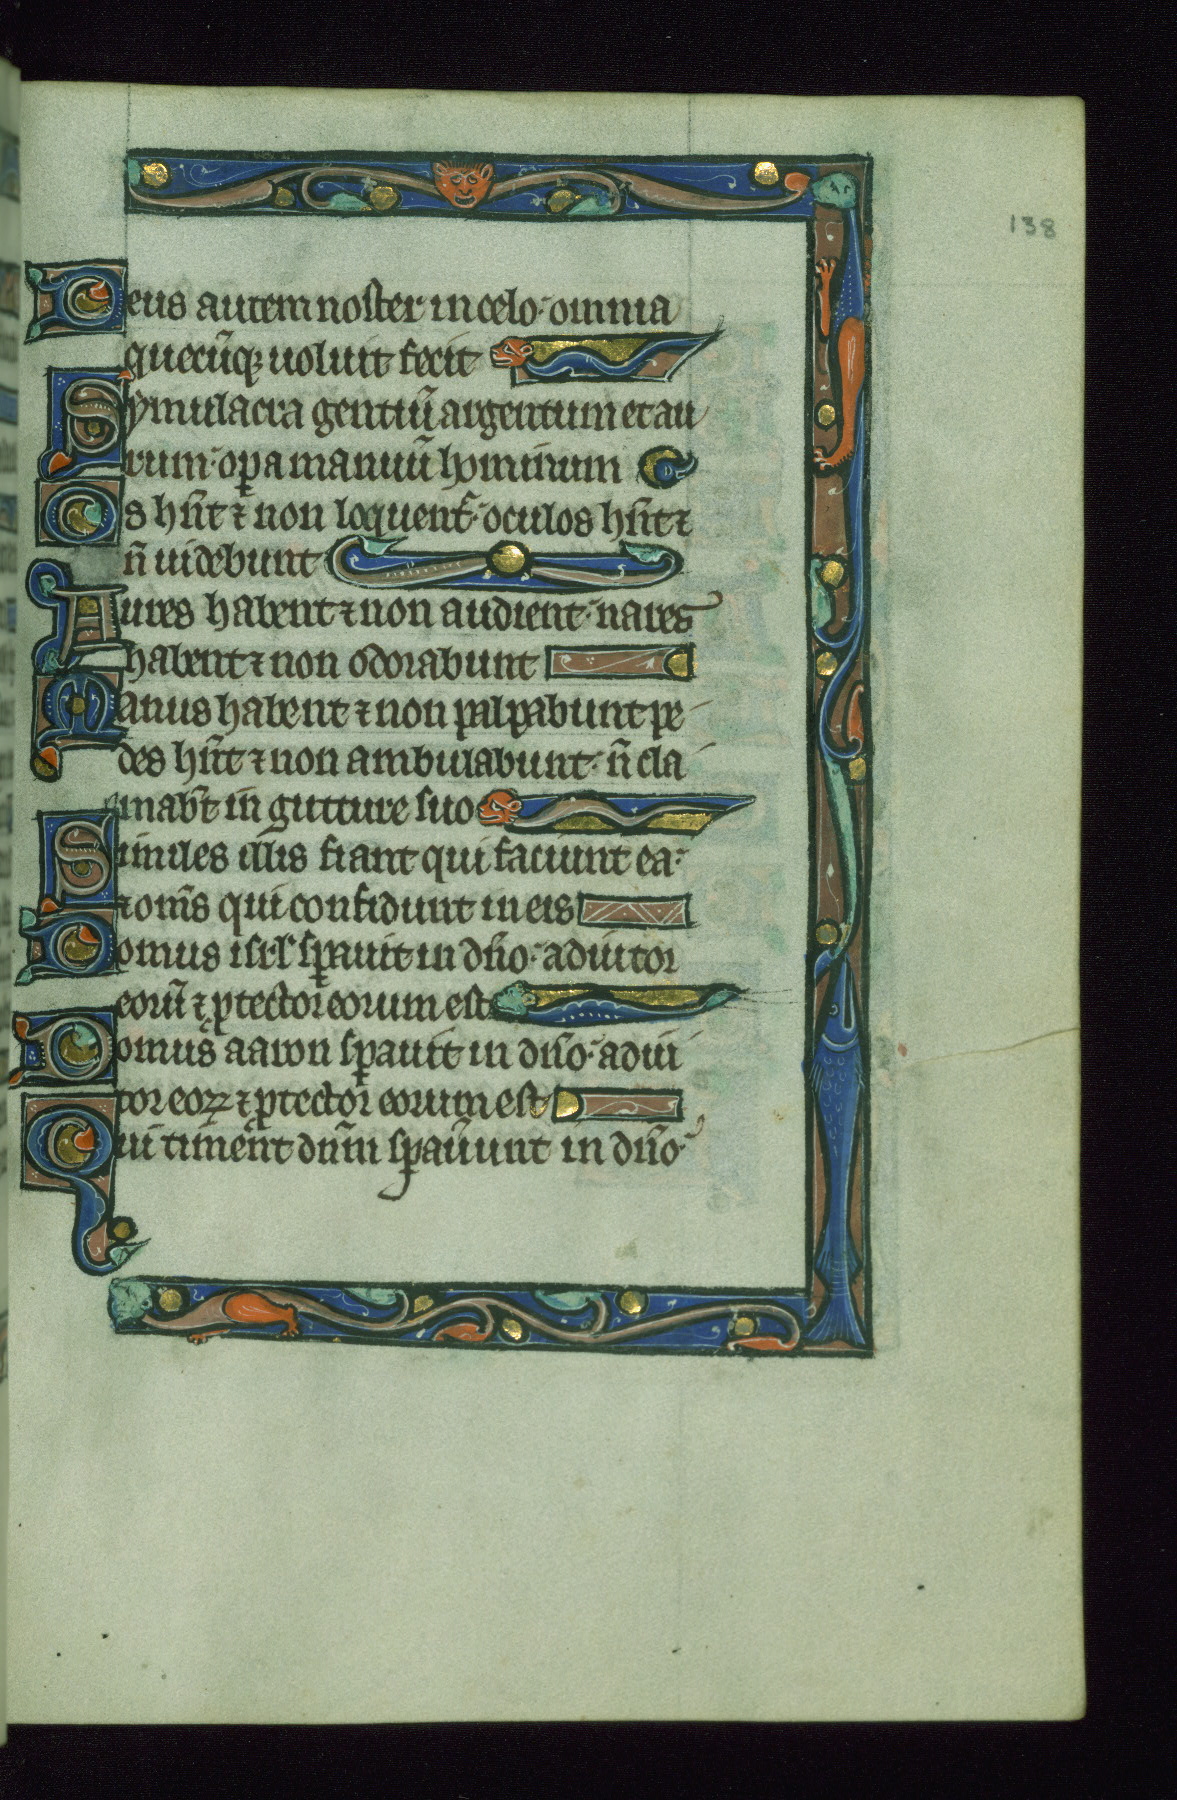 138
Deus autem noster in celo· omnia
quecũq; uoluit fecit
Symulacra gentiũ argentum et au
rum· op̱a manuũ hominum
Os hñt ⁊ non loquent᷑· oculos hñt ⁊
ñ uidebunt
Aures habent ⁊ non audient· nares
habent ⁊ non odorabunt
Manus habent ⁊ non palpabunt pe
des hñt ⁊ non ambulabunt· ñ cla
mab̃t in gutture suo
Similes illis fiant qui faciunt ea·
⁊ om̃s qui confidunt in eis
Domus isrl' sp̱auit in dño· adiutor
eorũ ⁊ ꝓtector eorum est
Domus aaron sp̱auit in dño· adiu
tor eoꝝ ⁊ ꝓtector eorum est
Qui timent dñm sp̱aũunt in dño·